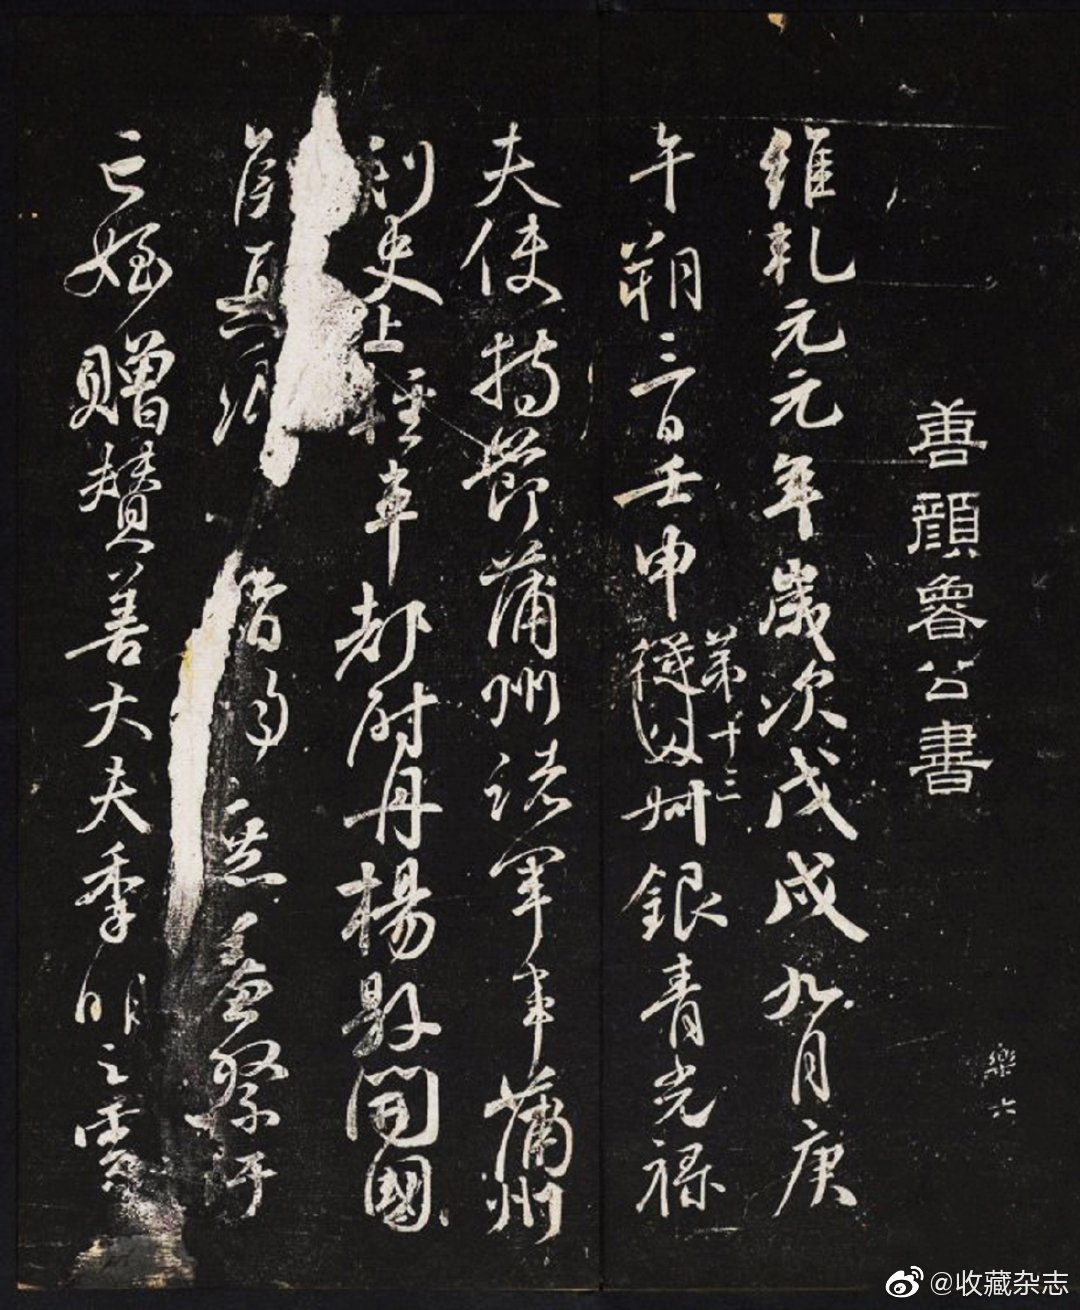 樂六
唐顏魯公書
維乾元元年歲次戊戌九月庚
午朔三日壬申第十三從父叔銀青光祿
夫使持節蒲州諸軍事蒲州
刺史上輕車都尉丹楊縣開國
侯真卿清酌庶羞祭于
亡姪贈贊善大夫季明之靈
@收藏杂志